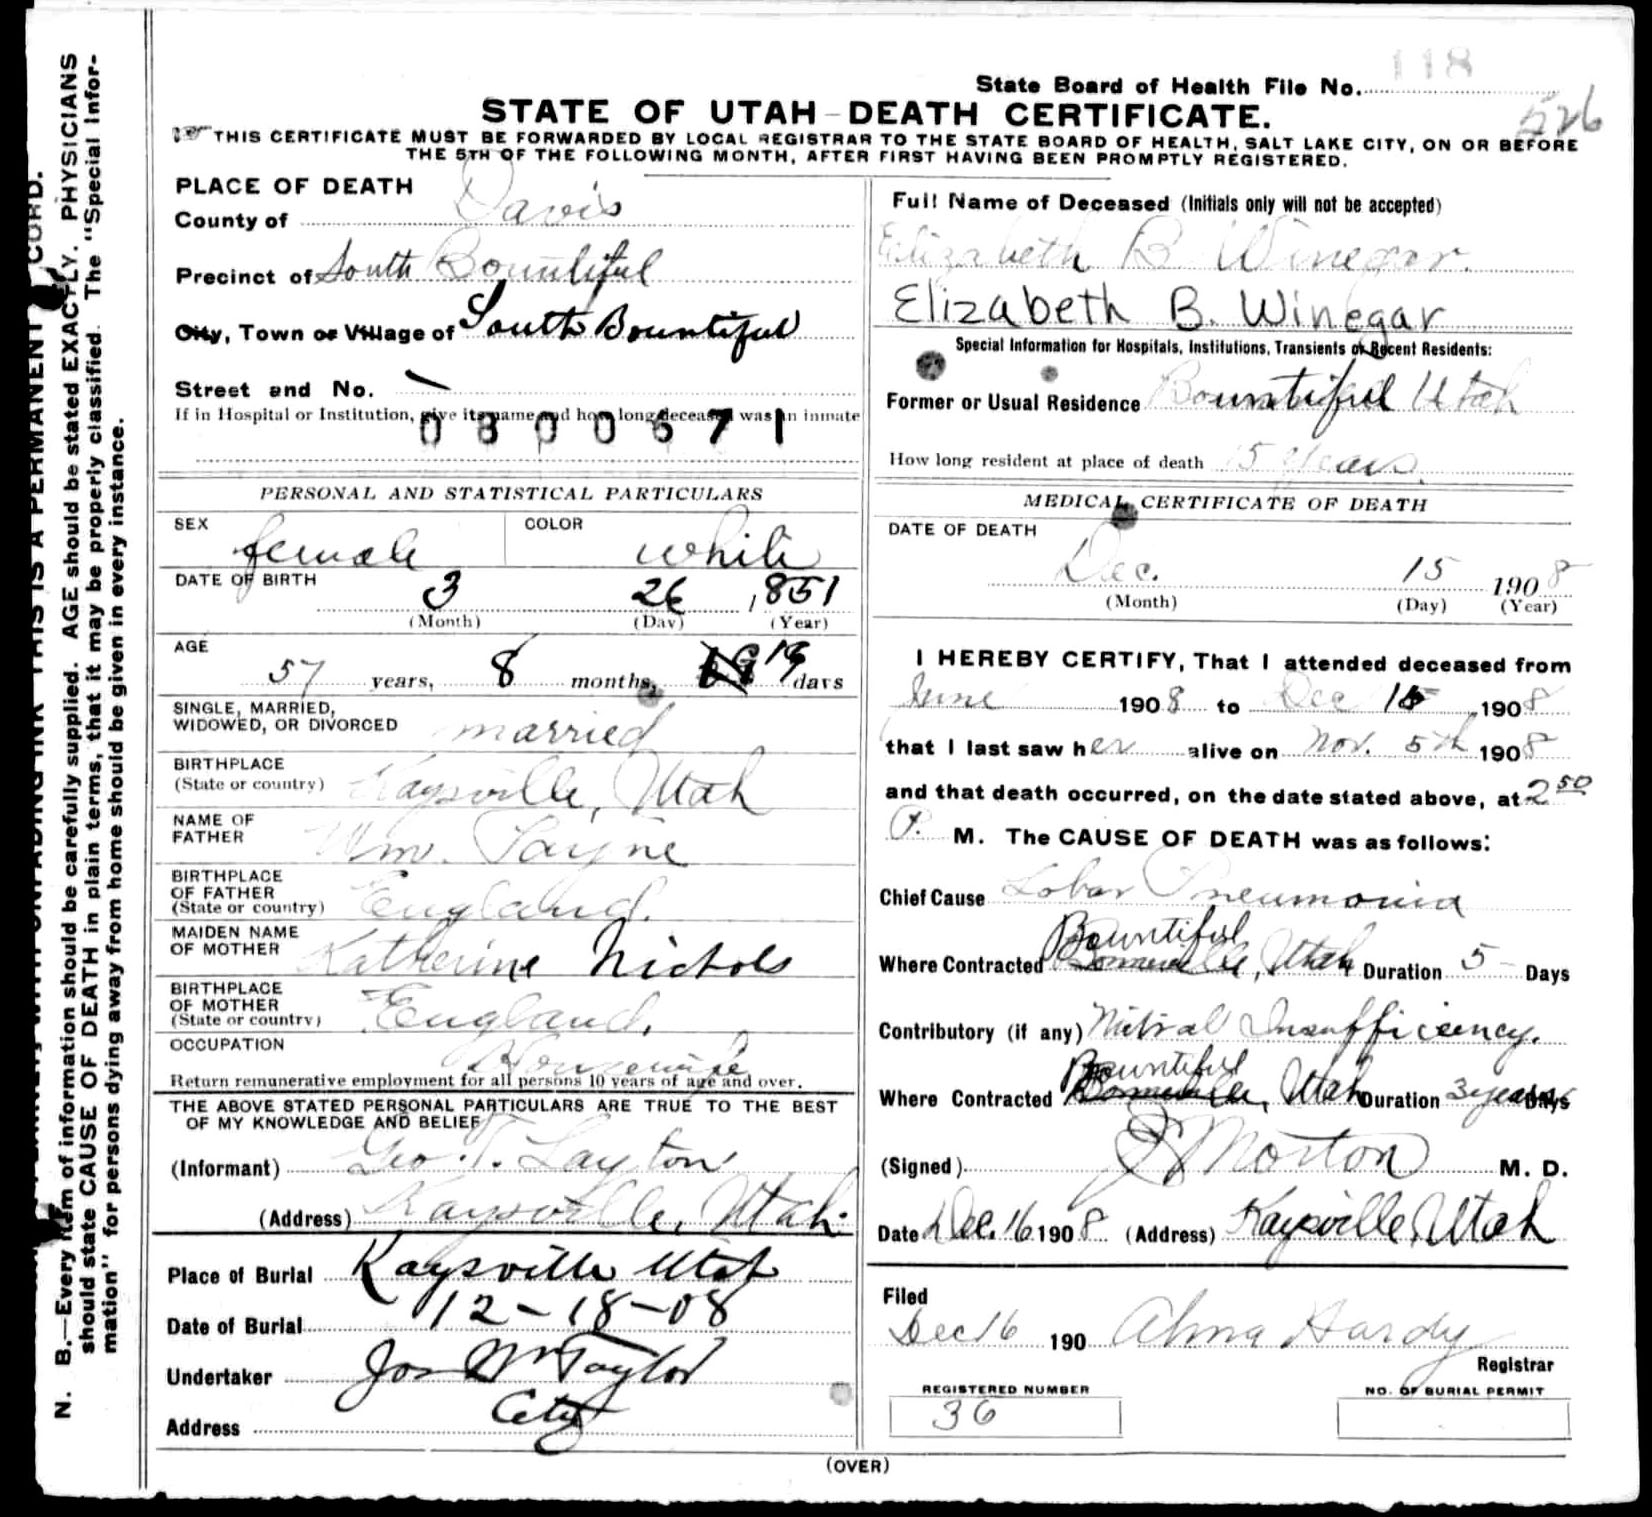 State Board of Health File No. 118
526
STATE OF UTAH - DEATH CERTIFICATE.
THIS CERTIFICATE MUST BE FORWARDED BY LOCAL REGISTRAR TO THE STATE BOARD OF HEALTH, SALT LAKE CITY, ON OR BEFORE
THE 5TH OF THE FOLLOWING MONTH, AFTER FIRST HAVING BEEN PROMPTLY REGISTERED.
N. B.—Every item of information should be carefully supplied. AGE should be stated EXACTLY. PHYSICIANS
should state CAUSE OF DEATH in plain terms, that it may be properly classified. The "Special Infor-
mation" for persons dying away from home should be given in every instance.
THIS IS A PERMANENT
PLACE OF DEATH
County of Davis
Precinct of South Bountiful
City, Town or Village of South Bountiful
Street and No.
If in Hospital or Institution, give its name and how long deceased was an inmate
0800671
PERSONAL AND STATISTICAL PARTICULARS
SEX female COLOR white
DATE OF BIRTH 3 26 1851
(Month) (Day) (Year)
AGE
57 years, 8 months, 19 days
SINGLE, MARRIED,
WIDOWED, OR DIVORCED married
BIRTHPLACE
(State or country) Kaysville, Utah
NAME OF
FATHER Wm. Payne
BIRTHPLACE
OF FATHER
(State or country) England.
MAIDEN NAME
OF MOTHER Katherine Nichols
BIRTHPLACE
OF MOTHER
(State or country) England.
OCCUPATION Housewife
Return remunerative employment for all persons 10 years of age and over.
THE ABOVE STATED PERSONAL PARTICULARS ARE TRUE TO THE BEST
OF MY KNOWLEDGE AND BELIEF
(Informant) Geo. T. Layton
(Address) Kaysville, Utah.
Place of Burial Kaysville Utah
Date of Burial 12-18-08
Undertaker Jos Wm Taylor
Address City
Full Name of Deceased (Initials only will not be accepted)
Elizabeth B Winegar.
Elizabeth B. Winegar
Special Information for Hospitals, Institutions, Transients or Recent Residents:
Former or Usual Residence Bountiful Utah
How long resident at place of death 15 years.
MEDICAL CERTIFICATE OF DEATH
DATE OF DEATH
Dec. 15 1908
(Month) (Day) (Year)
I HEREBY CERTIFY, That I attended deceased from
June 1908 to Dec 15 1908
that I last saw her alive on Nov. 5th 1908
and that death occurred, on the date stated above, at 2 50
P. M. The CAUSE OF DEATH was as follows:
Chief Cause Lobar Pneumonia
Bountiful
Where Contracted Utah Duration 5 Days
Contributory (if any) Mitral Insufficiency.
Bountiful
Where Contracted Utah Duration 3 years Days
(Signed) Morton M. D.
Date Dec. 16 1908 (Address) Kaysville, Utah
Filed
Dec 16 190 Alma Hardy
Registrar
REGISTERED NUMBER
36
NO. OF BURIAL PERMIT
(OVER)